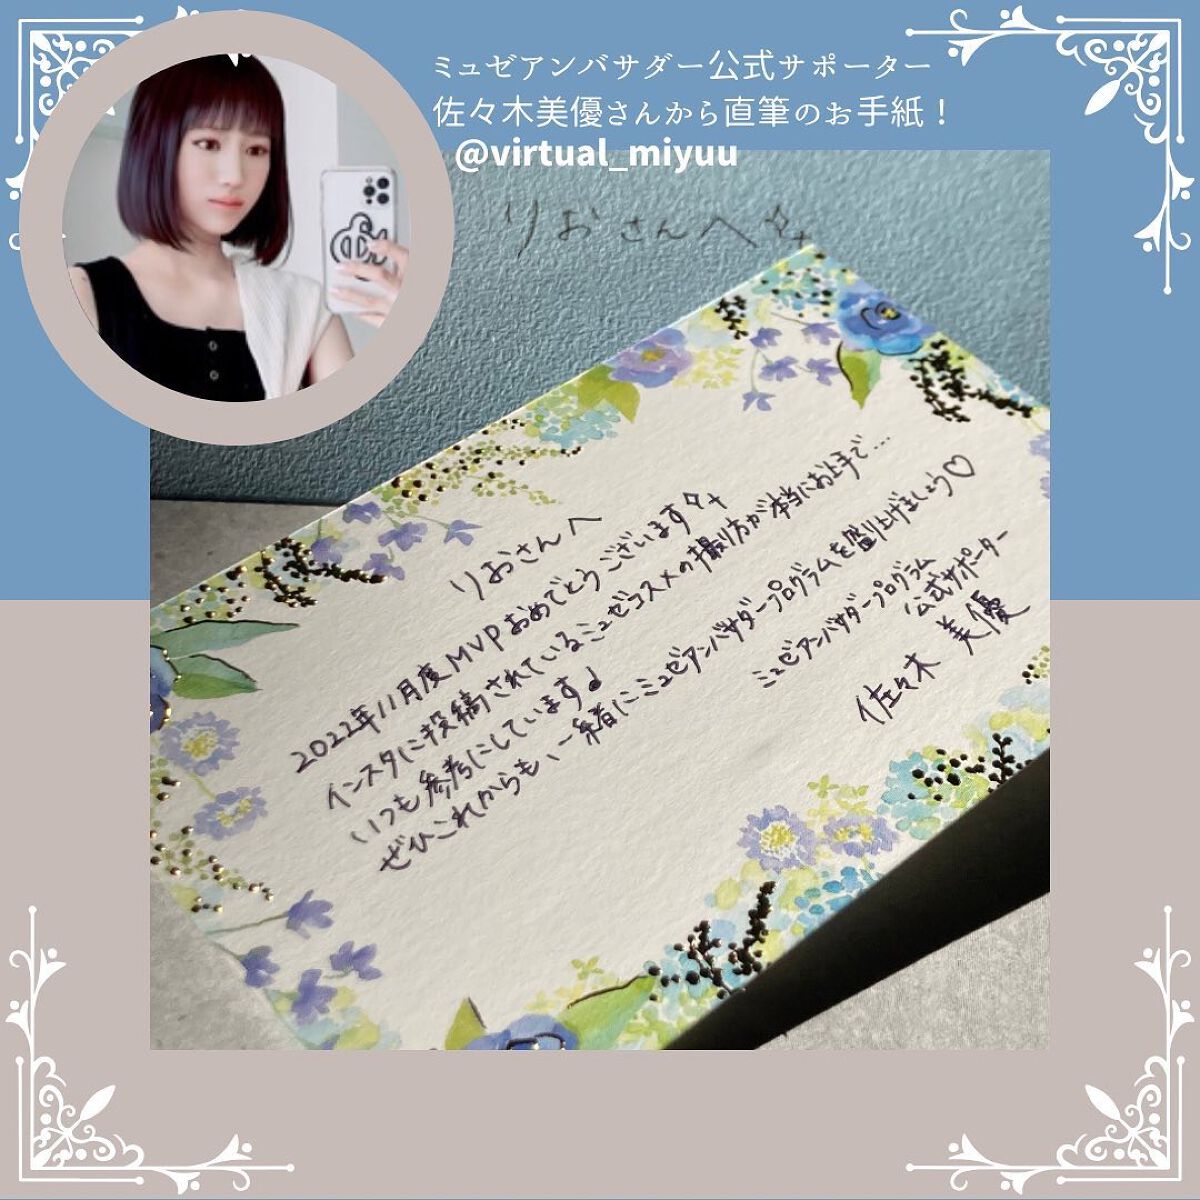 ミュゼアンバサダー公式サポーター
佐々木美優さんから直筆のお手紙！
@virtual_miyuu
りおさんへ
りおさんへ
2022年11月度MVPおめでとうございます
インスタに投稿されているミュゼコスメの撮り方が本当にお上手で…
いつも参考にしています♪
ぜひこれからも、一緒にミュゼアンバサダープログラムを盛り上げましょう♡
ミュゼアンバサダープログラム
公式サポーター
佐々木 美優